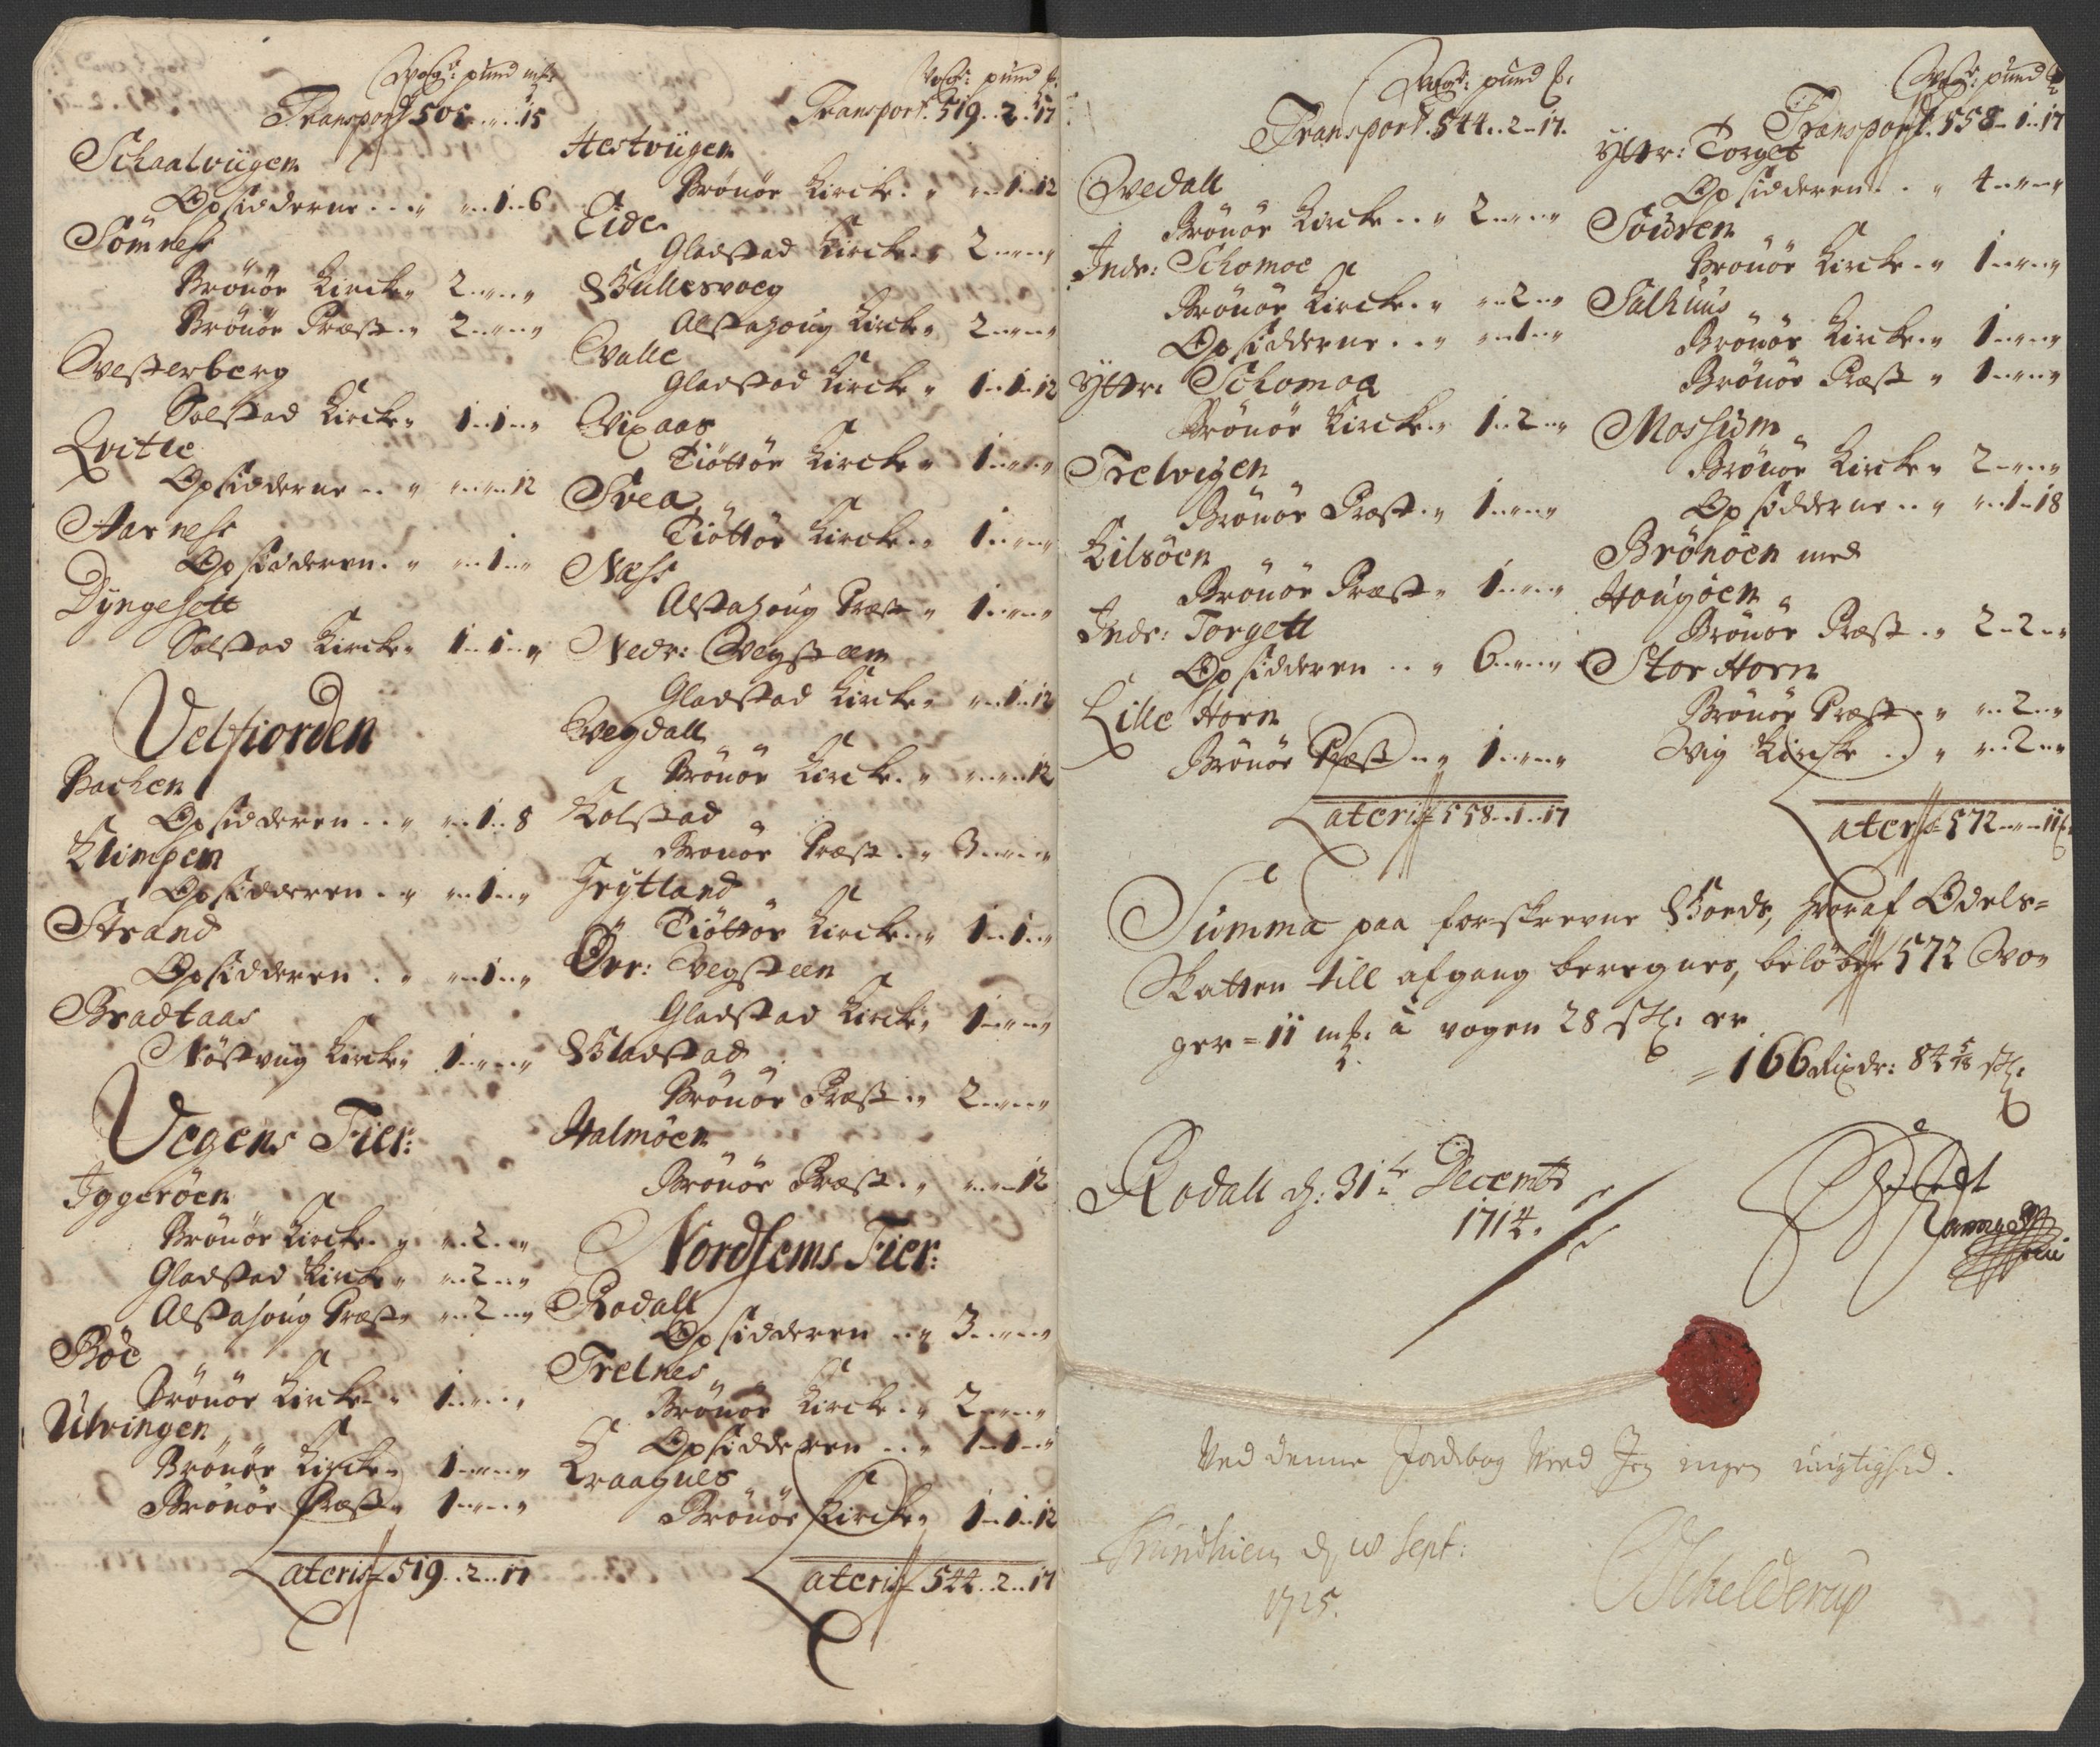 Wog: pund mk:
Transport 505 .. " .. 15
Schaalviigen
Opsidderne .. " " .. 1 .. 6
Sömness
Brönöe Kircke " 2 .. " .. "
Brönöe Præst " 2 .. " .. "
Westerberg
Solstad Kircke " 1 .. 1 .. "
Qvitle
Opsidderne .. " " .. " .. 12
Aarness
Opsidderen .. " " .. 1 .. "
Dyngesett
Solstad Kircke " 1 .. 1 .. "
Velfiorden
Bachen
Opsidderen .. " " .. 1 .. 8
Klimpem
Opsidderen .. " " .. 1 .. "
Strand
Opsidderen .. " " .. 1 .. "
Bradtaas
Nöstviig Kircke " 1 .. " .. "
Vegens Fier:
Iggeröen
Brönöe Kircke " " .. 2 .. "
Gladstad Kircke " " .. 2 .. "
Alstahoug Præst " " .. 2 .. "
Böe
Brönöe Kircke " 1 .. " .. "
Ulvingen
Brönöe Kircke " 1 .. " .. "
Brönöe Præst " 1 .. " .. "
Lateris 519 .. 2 .. 17
Wog: pund
Transport 519 .. 2 .. 17
Hestviigen
Brönöe Kircke " " .. 1 .. 12
Eide
Gladstad Kircke " 2 .. " .. "
Gullesvaeg
Alstahoug Kircke " 2 .. " .. "
Walle
Gladstad Kircke " 1 .. 1 .. 12
Wixaas
Tiöttöe Kircke " 1 .. " .. "
Svea
Tiöttöe Kircke " 1 .. " .. "
Næss
Alstahoug Præst " 1 .. " .. "
Nedr: Wegsteen
Gladstad Kircke " " .. 1 .. 12
Wegdall
Brönöe Kircke " " .. " .. 12
Kolstad
Brönöe Præst .. " 3 .. " .. "
Grytland
Tiöttöe Kircke .. " 1 .. 1 .. "
Övr: Wegsteen
Gladstad Kircke " 1 .. " .. "
Gladstad
Brönöe Præst .. " 2 .. " .. "
Halmöen
Brönöe Præst .. " " .. " .. 12
Nordhems Fier:
Rodall
Opsidderen .. " 3 .. " .. "
Trelnes
Brönöe Kircke .. " 2 .. " .. "
Opsidderen .. " 1 .. 1 .. "
Kraagnes
Brönöe Kircke " 1 .. 1 .. 12
Lateris 544 .. 2 .. 17
Wog: pund
Transport 544 .. 2 .. 17.
Wedall
Brönöe Kircke .. " 2 .. " .. "
Indr: Schomoe
Brönöe Kircke .. " " .. 2 .. "
Opsidderne .. " " .. 1 .. "
Yttr: Schomoe
Brönöe Kircke .. " 1 .. 2 .. "
Trelvigen
Brönöe Præst .. " 1 .. " .. "
Kilsöen
Brönöe Præst " 1 .. " .. "
Indr: Torgett
Opsidderen .. " 6 .. " .. "
Lille Horn
Brönöe Præst .. " 1 .. " .. "
Lateris 558 .. 1 .. 17
Wog: pund
Transport 558 .. 1 .. 17
Yttr: Torget
Opsidderen .. " 4 .. " .. "
Souren
Brönöe Kircke .. " 1 .. " .. "
Salhuus
Brönöe Kircke .. " 1 .. " .. "
Brönöe Præst " 1 .. " .. "
Mossum
Brönöe Kircke " 2 .. " .. "
Opsidderne .. " " .. 1 .. 18
Brönöen med
Hougöen
Brönöe Præst .. " 2 .. 2 .. "
Stor Horn
Brönöe Præst .. " " .. 2 .. "
Wig Kircke .. " " .. 2 .. "
Lateris 572 .. " .. 11
Summa paa forskrevne Goeds, hvoraf Odels=
Skatten till afgang beregnes, beløber 572 Wo=
ger = 11 mk: à wogen 28 sk: er
= 166 Rixdr: 84 5/18 sk:
Rodall d: 31te Decembr
1714.
Ved denne Jordebog Veed Jeg ingen urigtighed.
Trundhiem d, 10 Sept:
1715.
Schelderup